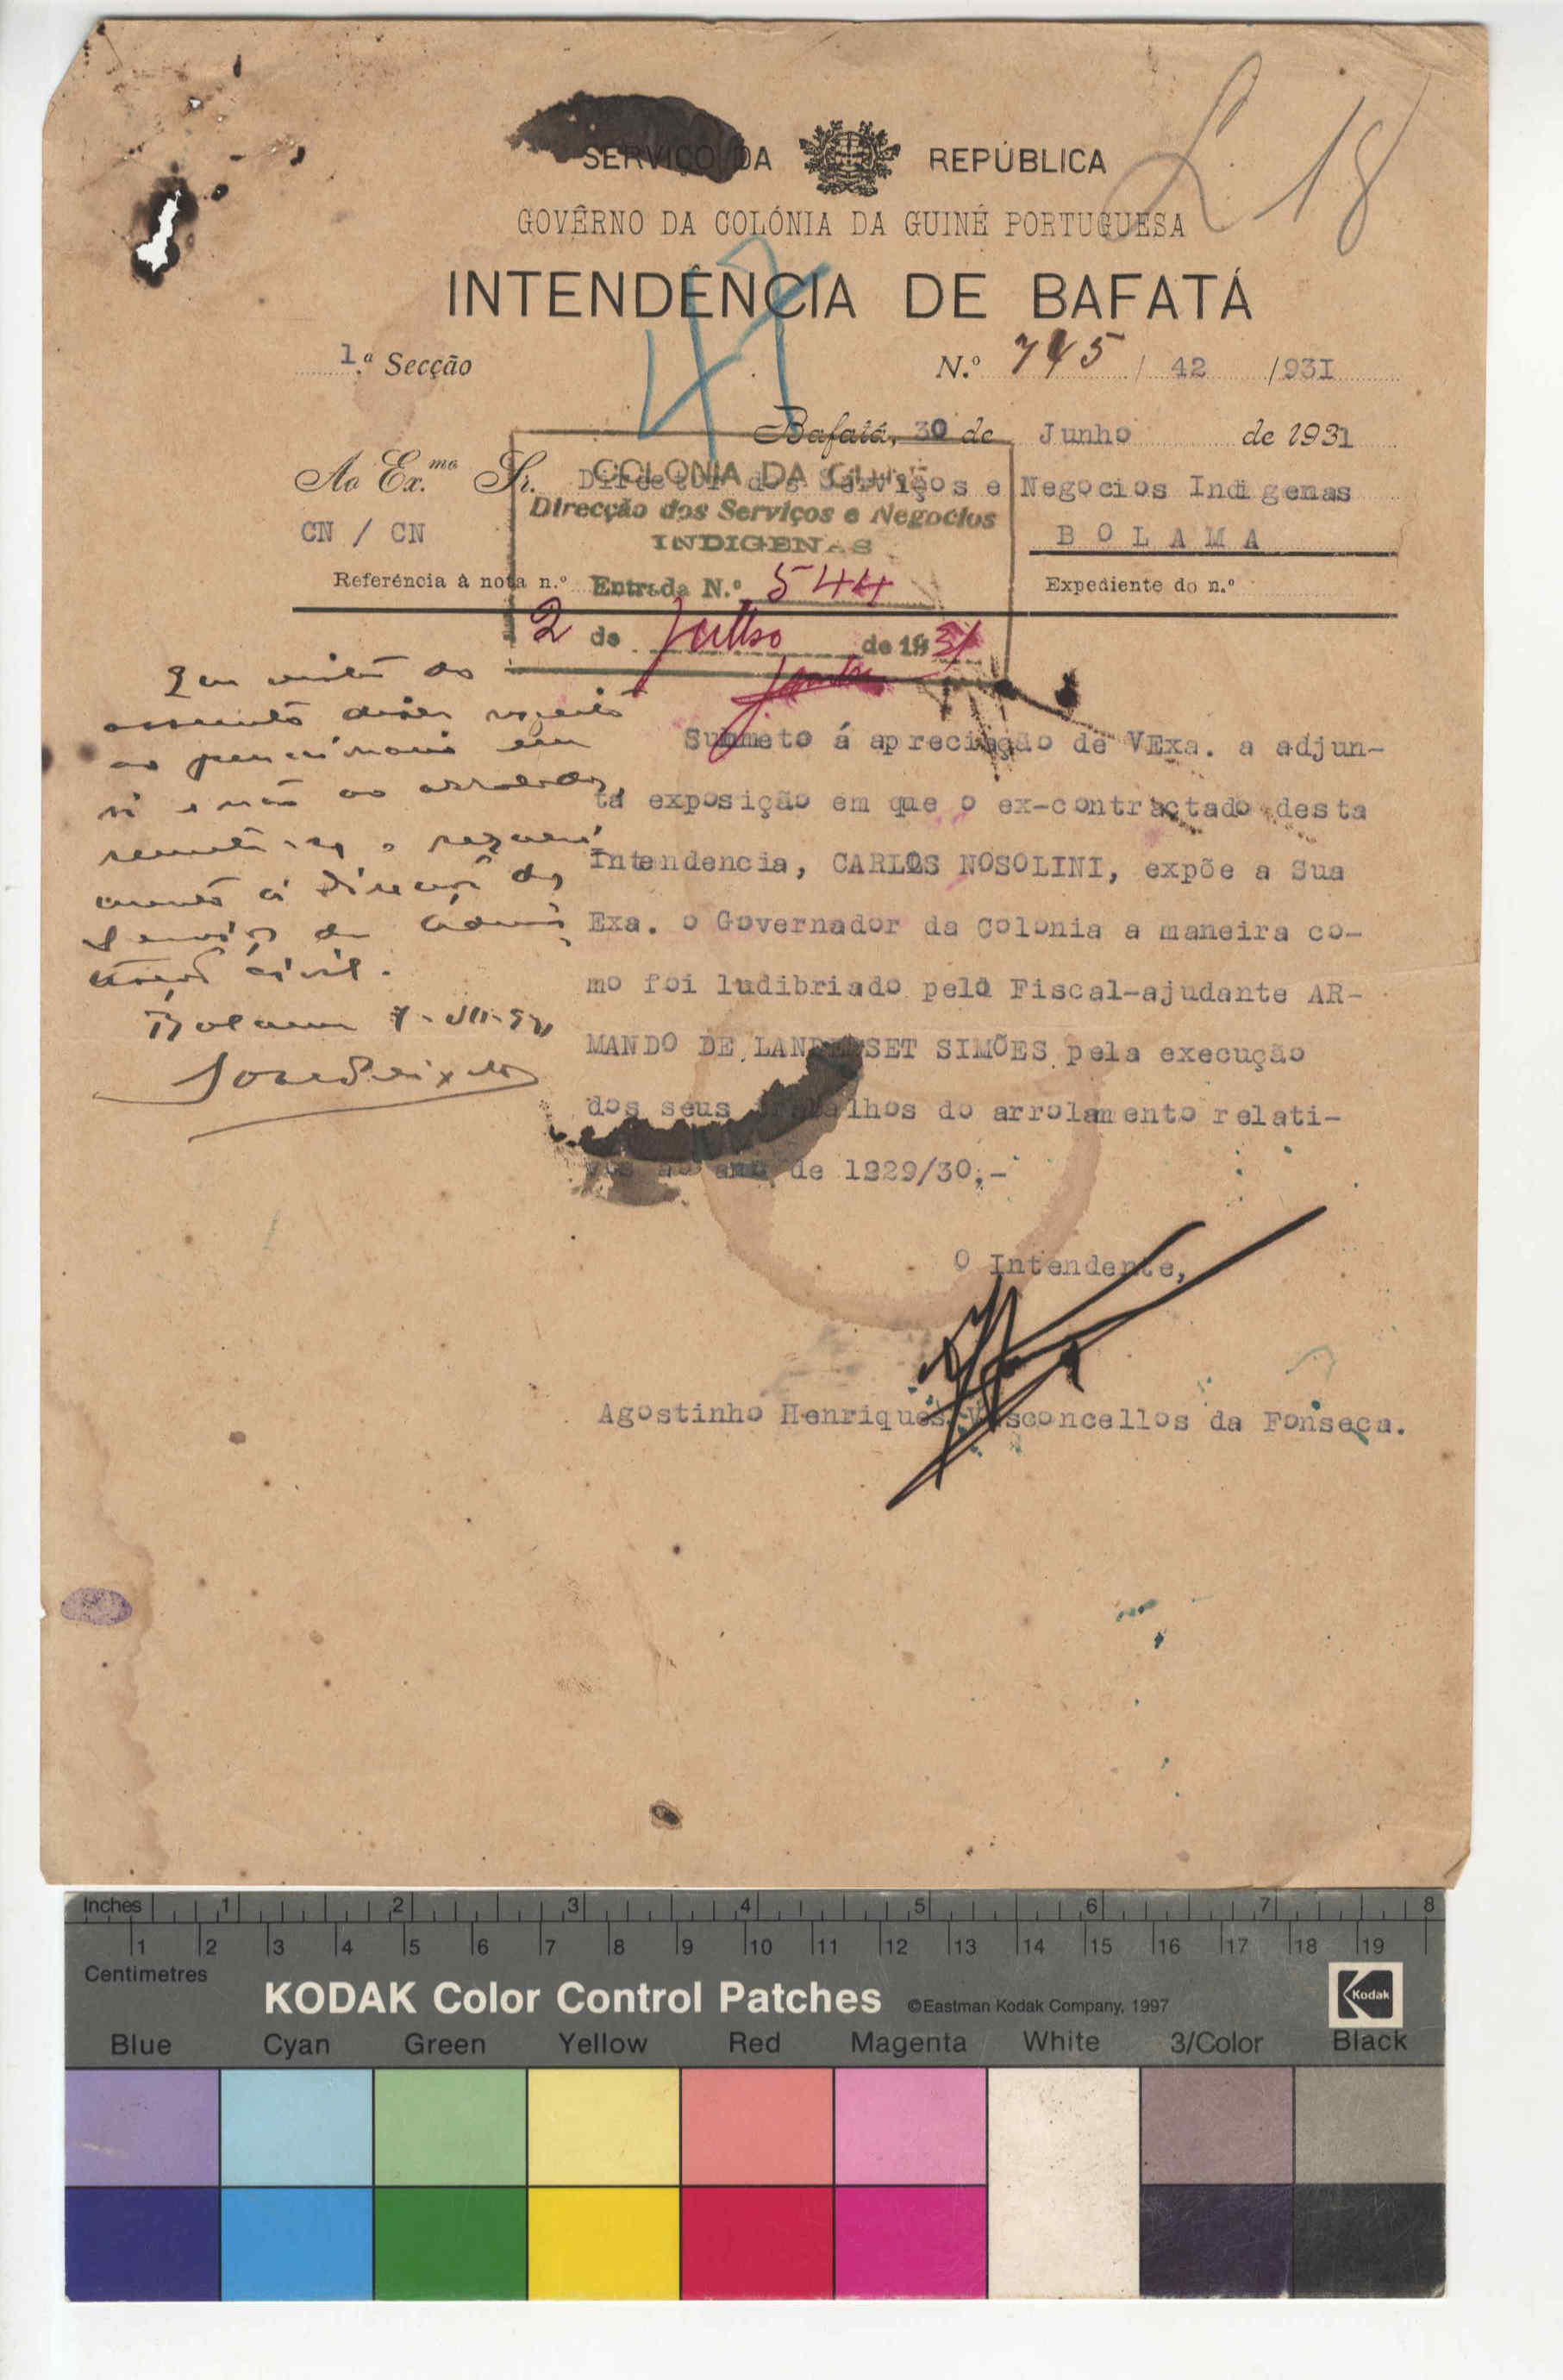 L. 18
SERVIÇO DA REPÚBLICA
GOVÊRNO DA COLÓNIA DA GUINÉ PORTUGUESA
INTENDÊNCIA DE BAFATÁ
47
1.ª Secção
N.º 745 / 42 / 931
Bafatá, 30 de Junho de 1931
Ao Ex.mo Sr. Director dos Serviços e Negocios Indigenas
CN / CN
BOLAMA
Referência à nota n.º
Expediente do n.º
COLONIA DA GUINÉ
Direcção dos Serviços e Negocios
INDIGENAS
Entrada N.º 544
2 de Julho de 1931
assunto dizer respeito
si e não ao arrolador,
remeta-se o requeri
mento á Direcção dos
Serviços da Admi
civil.
Bolama 7-VII-931
Summeto á apreciação de VExa. a adjun-
ta exposição em que o ex-contractado desta
Intendencia, CARLOS NOSOLINI, expõe a Sua
Exa. o Governador da Colonia a maneira co-
mo foi ludibriado pelo Fiscal-ajudante AR-
MANDO DE LANDERSET SIMÕES pela execução
dos seus trabalhos do arrolamento relati-
vos ao ano de 1929/30;-
O Intendente,
Agostinho Henriques Vasconcellos da Fonseca.
Inches 1 2 3 4 5 6 7 8
1 2 3 4 5 6 7 8 9 10 11 12 13 14 15 16 17 18 19
Centimetres
KODAK Color Control Patches ©Eastman Kodak Company, 1997 Kodak
Blue Cyan Green Yellow Red Magenta White 3/Color Black